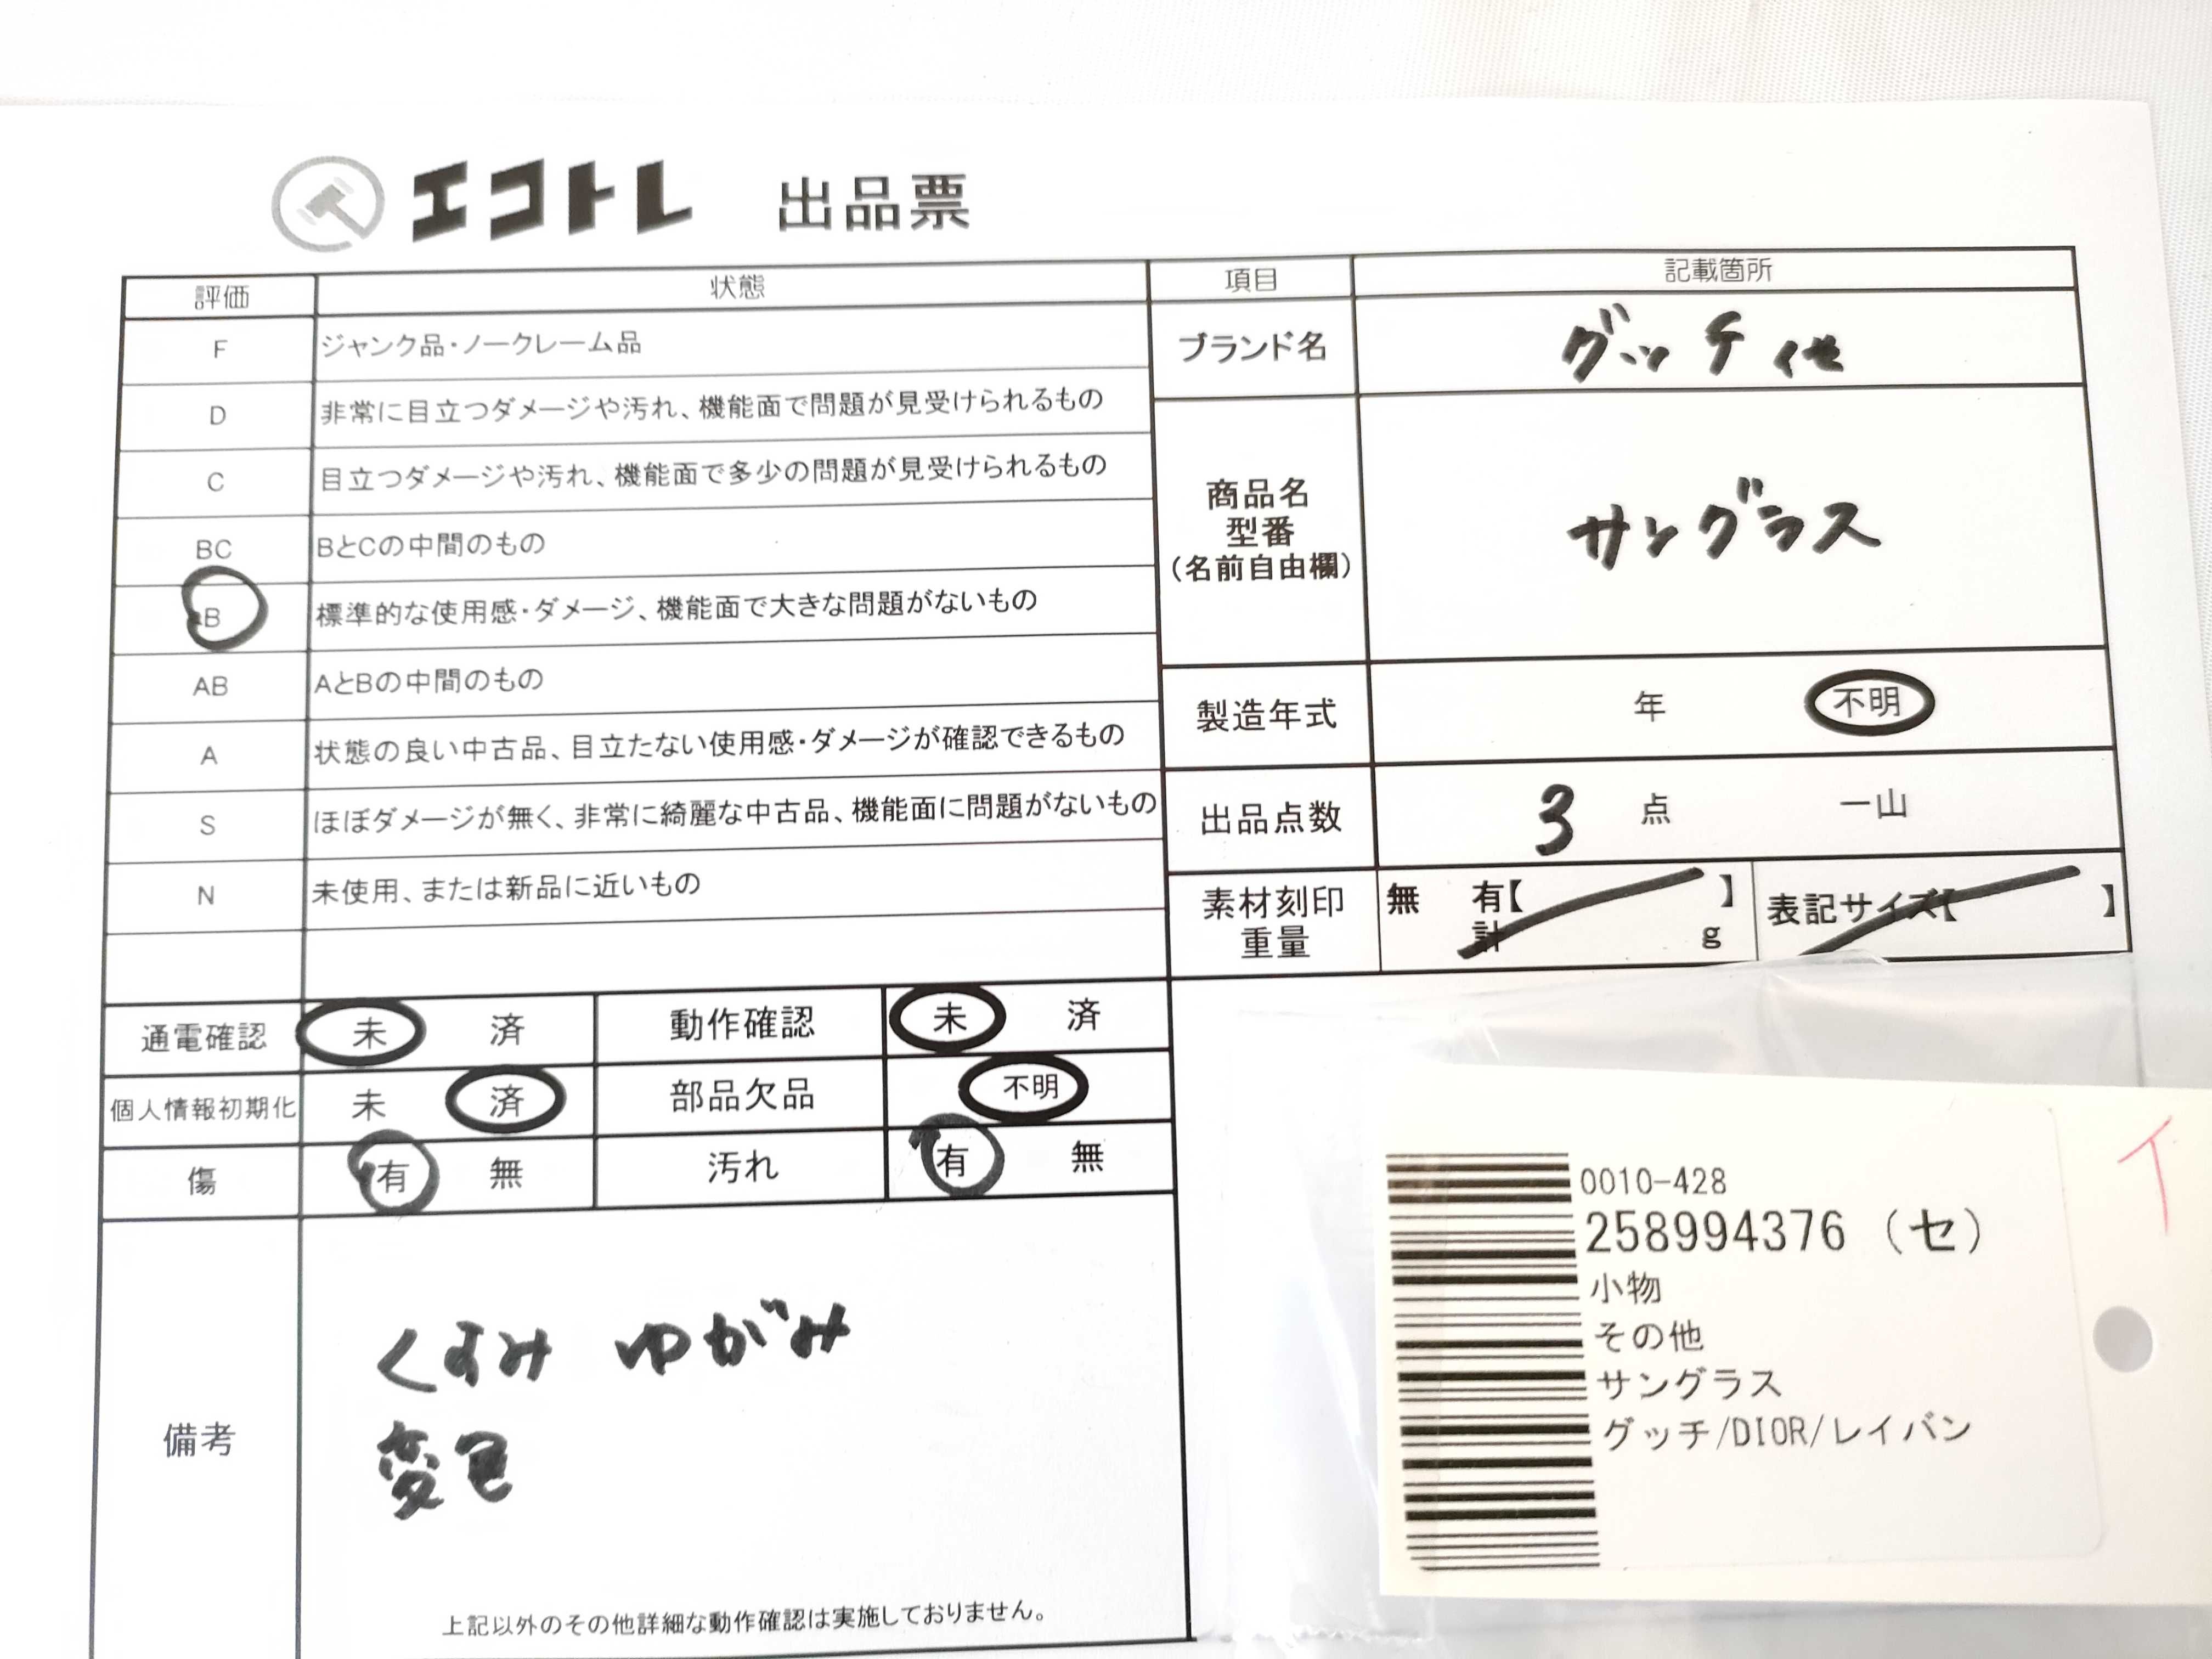 エコトレ 出品票
評価 状態
F ジャンク品・ノークレーム品
D 非常に目立つダメージや汚れ、機能面で問題が見受けられるもの
C 目立つダメージや汚れ、機能面で多少の問題が見受けられるもの
BC BとCの中間のもの
B 標準的な使用感・ダメージ、機能面で大きな問題がないもの
AB AとBの中間のもの
A 状態の良い中古品、目立たない使用感・ダメージが確認できるもの
S ほぼダメージが無く、非常に綺麗な中古品、機能面に問題がないもの
N 未使用、または新品に近いもの
項目 記載箇所
ブランド名 グッチ 他
商品名
型番
(名前自由欄)
サングラス
製造年式 年 不明
出品点数 3 点 一山
素材刻印
重量
無 有【 】
計 g
表記サイズ【 】
通電確認 未 済 動作確認 未 済
個人情報初期化 未 済 部品欠品 不明
傷 有 無 汚れ 有 無
備考
くすみ ゆがみ
変色
上記以外のその他詳細な動作確認は実施しておりません。
0010-428
258994376 (セ)
小物
その他
サングラス
グッチ/DIOR/レイバン
イ